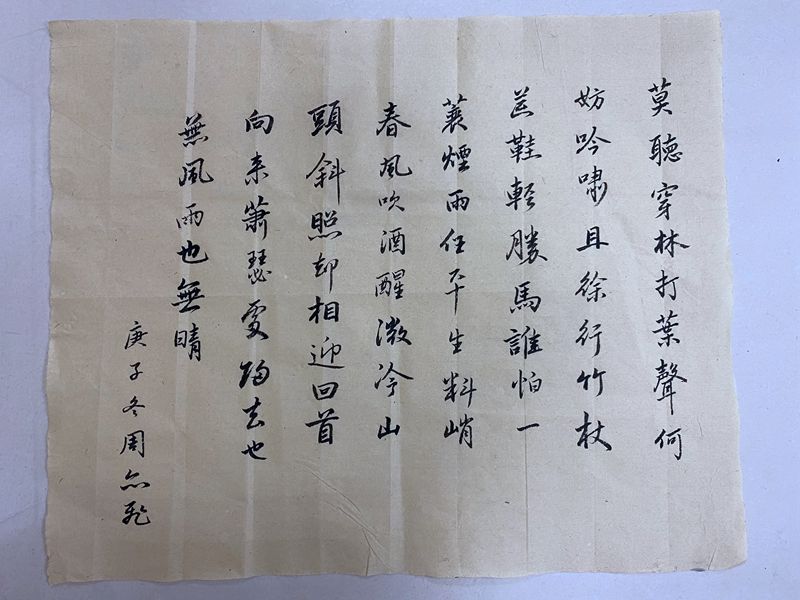 莫聽穿林打葉聲何
妨吟嘯且徐行竹杖
芒鞋輕勝馬誰怕一
蓑煙雨任平生料峭
春風吹酒醒微冷山
頭斜照却相迎回首
向来蕭瑟處歸去也
無風雨也無晴
庚子冬周